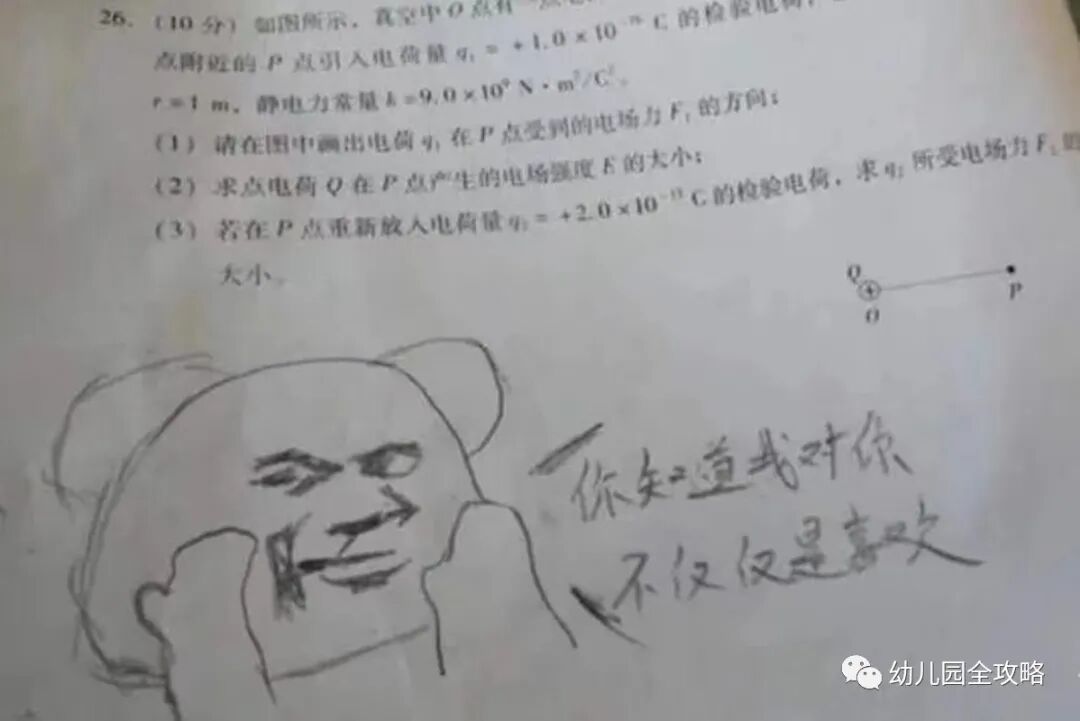 26. (10 分) 如图所示,真空中 O 点有一点电
点附近的 P 点引入电荷量 q₁ = +1.0×10 C 的检验电荷,
r = 1 m,静电力常量 k = 9.0×10⁹ N·m²/C²。
(1) 请在图中画出电荷 q₁ 在 P 点受到的电场力 F₁ 的方向;
(2) 求点电荷 Q 在 P 点产生的电场强度 E 的大小;
(3) 若在 P 点重新放入电荷量 q₂ = +2.0×10 C 的检验电荷,求 q₂ 所受电场力 F₂ 的
大小。
Q
P
O
你知道我对你
不仅仅是喜欢
幼儿园全攻略